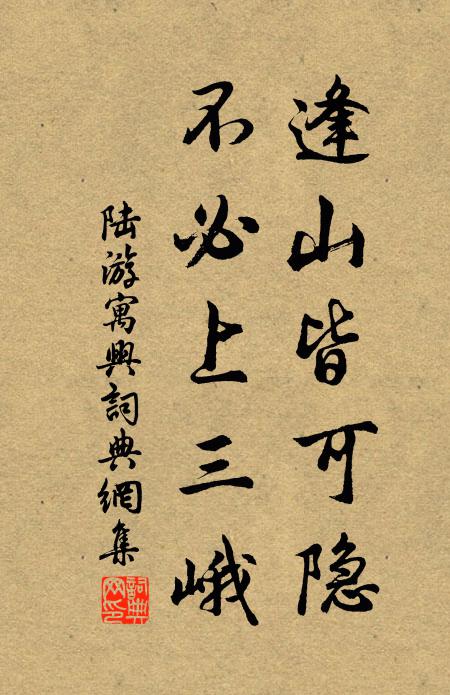 逢山皆可隐
不必上三峨
陆游寓興詞典網集
詞典网印